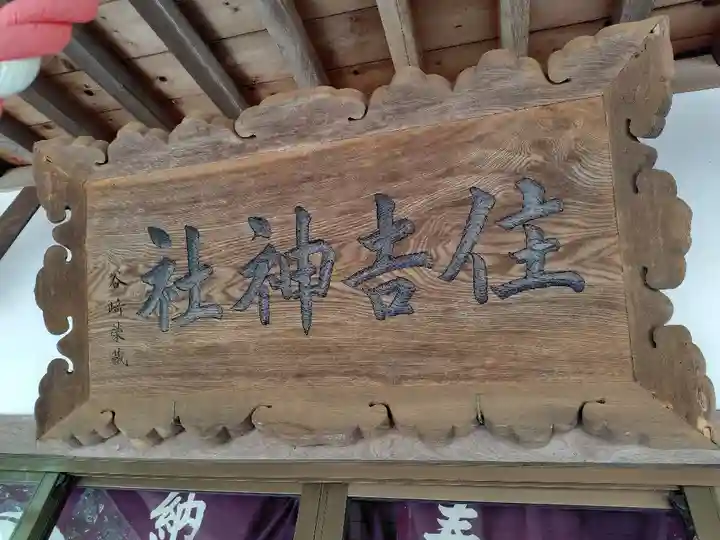 住吉神社
谷崎榮蔵
奉
納